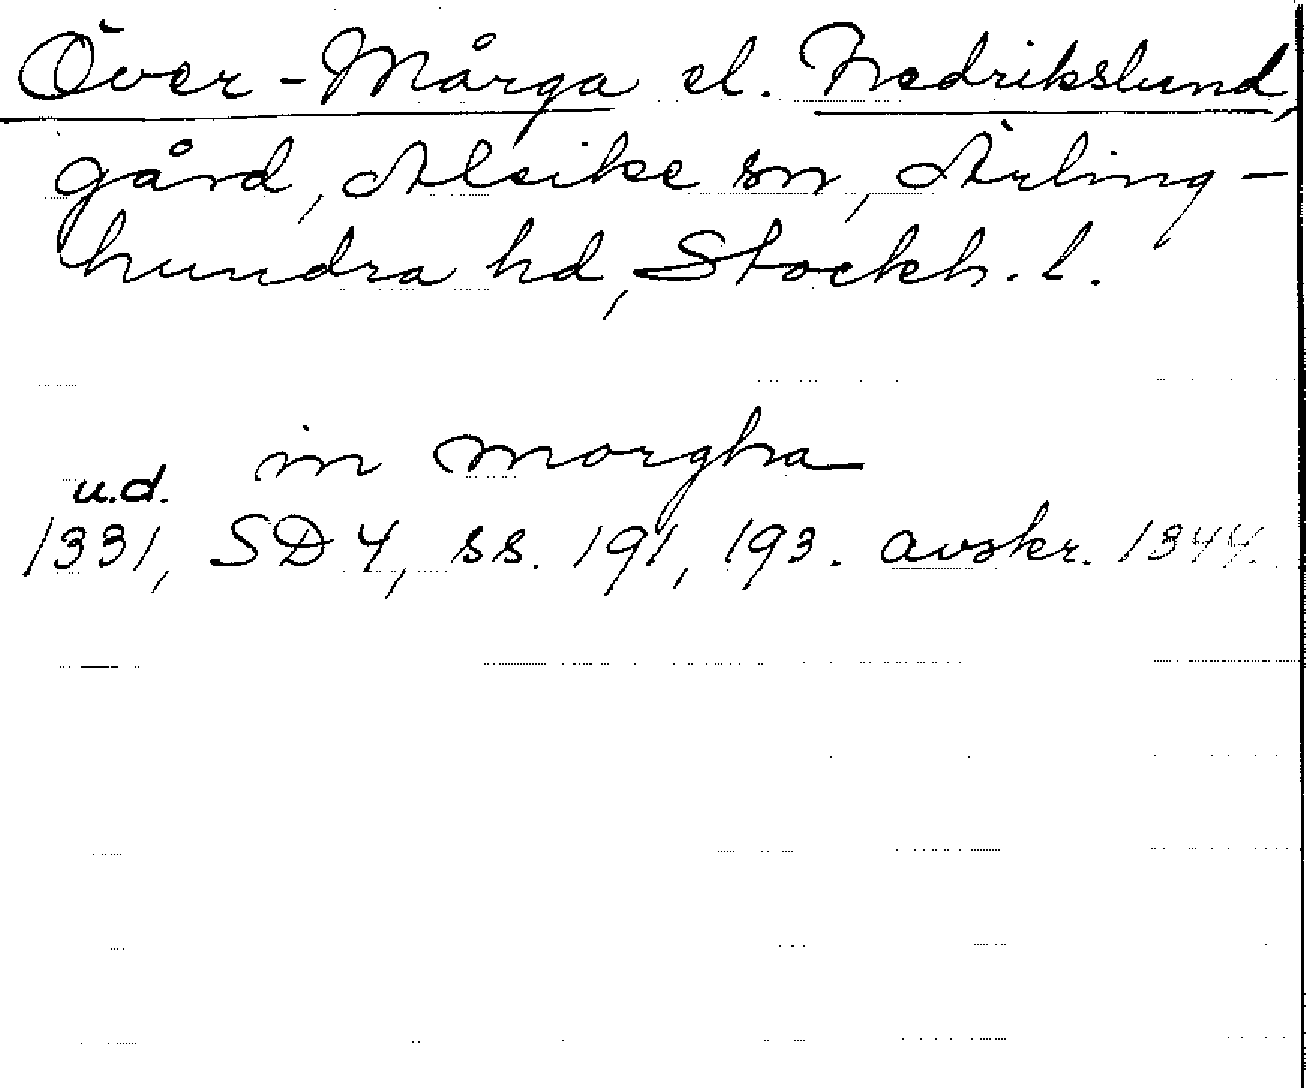 Över-Mårga el. Fredrikslund,
gård, Alsike sn, Ärling-
hundra hd, Stockh. l.
in morgha
u.d.
1331, SD 4, ss. 191, 193. avskr. 1344.